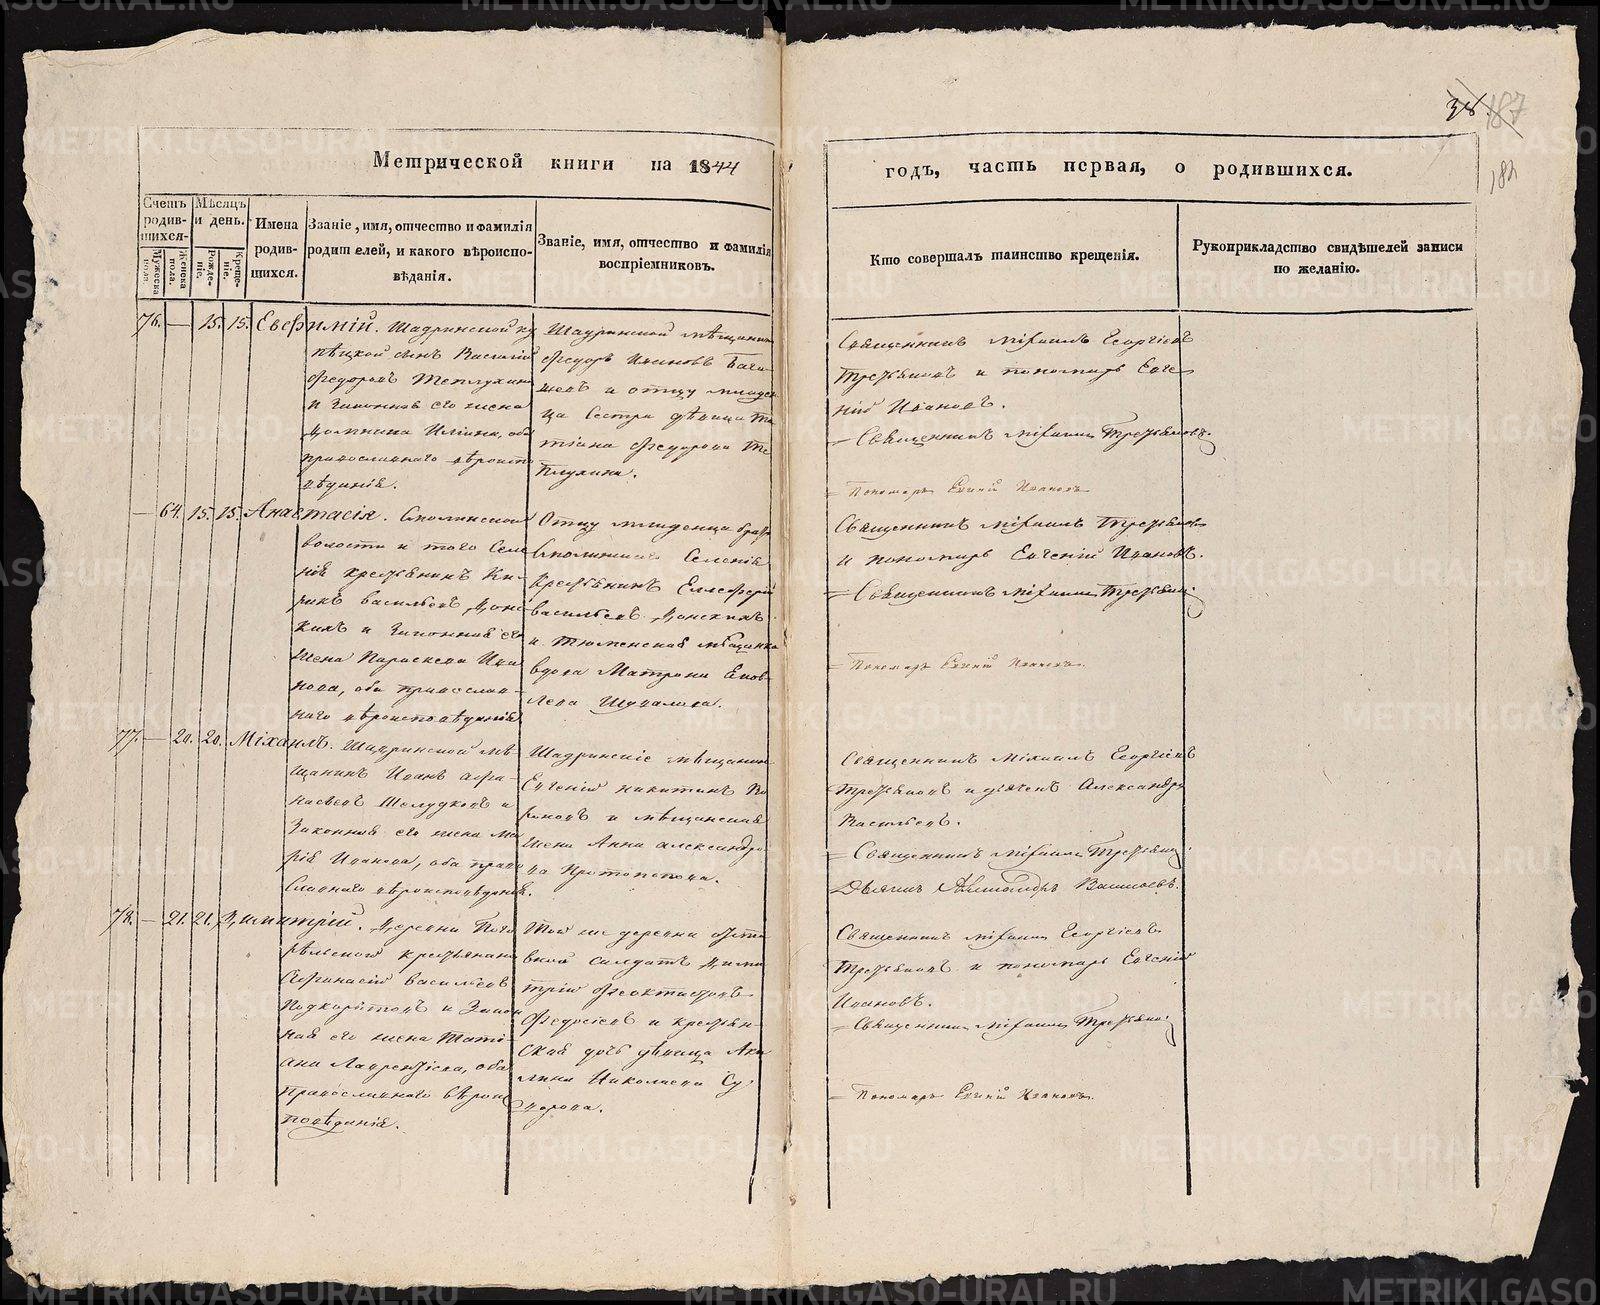 38. 187
182
Метрической книги на 1844
годъ, часть первая, о родившихся.
Счетъ родив-шихся.
Мужеска пола.
Женска пола.
Мѣсяцъ и день.
Рожде-ніе.
Креще-ніе.
Имена родив-шихся.
Званіе, имя, отчество и фамилія
родителей, и какого вѣроиспо-
вѣданія.
Званіе, имя, отчество и фамилія
воспріемниковъ.
Кто совершалъ таинство крещенія.
Рукоприкладство свидѣтелей записи
по желанію.
76. — 15. 15. Евѳимій. Шадринской ку
пѣцкой сынъ Василій
Федоровъ Теплухинъ
и Законная его жена
Домнина Иліина, оба
православнаго вѣроиспо
вѣданія.
Шадринской мѣщанинъ
Федоръ Ивановъ
и отцу младен
ца Сестра дѣвица Та
тіана Федорова Те
плухина.
Священникъ Михаилъ Георгіевъ
Третьяковъ и пономарь Евге
ній Ивановъ.
= Священникъ Михаилъ Третьяковъ.
= Пономарь Евгеній Ивановъ
— 64. 15. 15. Анастасія. Смолинской
волости и того Селе
нія крестьянинъ Ки-
рикъ Васильевъ Донс
кихъ и Законная его
жена Параскева Ива
нова, оба православ-
наго вѣроисповѣданія
Отцу младенца братъ
Смолинскаго Селенія
Крестьянинъ Елевферій
Васильевъ Донскихъ
и Тюменская мѣщанка
вдова Матрона Еков
лева
Священникъ Михаилъ Третьяковъ
и пономарь Евгеній Ивановъ.
= Священникъ Михаилъ Третьяковъ
= Пономарь Евгеній Ивановъ.
77. — 20. 20. Міхаилъ. Шадринской мѣ-
щанинъ Иванъ Афа-
насьевъ Шелудковъ и
Законная его жена Ма
рія Иванова, оба право
славнаго вѣроисповѣданія.
Шадринскіе мѣщанинъ
Евгеній Никитинъ
и мѣщанская
жена Анна Александро
ва Протопопова.
Священникъ Михаилъ Георгіевъ
Третьяковъ и дьячекъ Александръ
Васильевъ.
= Священникъ Михаилъ Третьяковъ
Дьячекъ Александръ Васильевъ.
78. — 21. 21. Димитрій. Деревни Пого
рѣльской крестьянинъ
Афанасій Васильевъ
Подкорытовъ и Закон
ная его жена Тати-
ана Лаврентіева, оба
православнаго вѣроис
повѣданія.
Той же деревни отста
вной солдатъ Дими
трій Феоктистовъ
Федосіевъ и крестьян-
ская дочь дѣвица Аку
лина Николаева Су
ворова.
Священникъ Михаилъ Георгіевъ
Третьяковъ и пономарь Евгеній
Ивановъ.
= Священникъ Михаилъ Третьяковъ
= Пономарь Евгеній Ивановъ.
METRIKI.GASO-URAL.RU